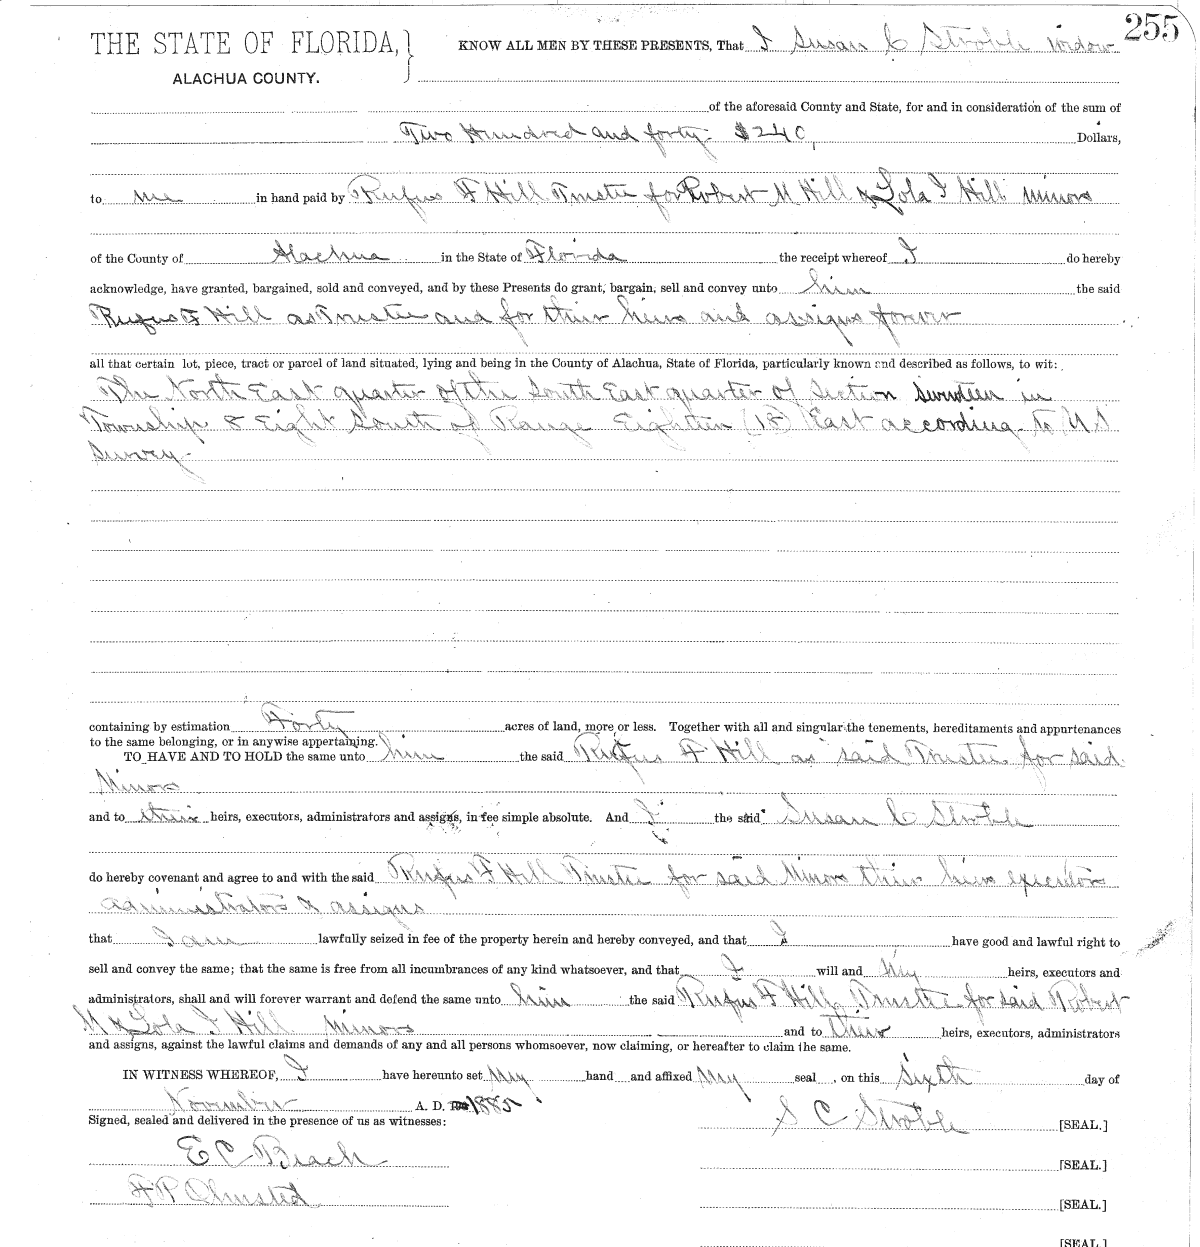 255
THE STATE OF FLORIDA,
ALACHUA COUNTY.
KNOW ALL MEN BY THESE PRESENTS, That I Susan C Stroble widow
of the aforesaid County and State, for and in consideration of the sum of
Two Hundred and forty $240 Dollars,
to me in hand paid by Rufus F Hill Trustee for Robert M Hill & Lola I Hill minors
of the County of Alachua in the State of Florida the receipt whereof I do hereby
acknowledge, have granted, bargained, sold and conveyed, and by these Presents do grant, bargain, sell and convey unto him the said
Rufus F Hill as Trustee and for their heirs and assigns forever
all that certain lot, piece, tract or parcel of land situated, lying and being in the County of Alachua, State of Florida, particularly known and described as follows, to wit:
The North East quarter of the South East quarter of Section in
Township 8 Eight South of Range Eighteen (18) East according to U.S
Survey
containing by estimation Forty acres of land, more or less. Together with all and singular the tenements, hereditaments and appurtenances
to the same belonging, or in anywise appertaining.
TO HAVE AND TO HOLD the same unto him the said Rufus F Hill as said Trustee for said
Minors
and to their heirs, executors, administrators and assigns, in fee simple absolute. And I the said Susan C Stroble
do hereby covenant and agree to and with the said Rufus F Hill Trustee for said Minors their heirs executors
administrators & assigns
that I am lawfully seized in fee of the property herein and hereby conveyed, and that I have good and lawful right to
sell and convey the same; that the same is free from all incumbrances of any kind whatsoever, and that I will and my heirs, executors and
administrators, shall and will forever warrant and defend the same unto him the said Rufus F Hill Trustee for said Robert
M & Lola I Hill minors and to their heirs, executors, administrators
and assigns, against the lawful claims and demands of any and all persons whomsoever, now claiming, or hereafter to claim the same.
IN WITNESS WHEREOF, I have hereunto set My hand and affixed My seal , on this Sixth day of
November A. D. 1885
Signed, sealed and delivered in the presence of us as witnesses:
S C Stroble [SEAL.]
E C Beach [SEAL.]
F P Olmsted [SEAL.]
[SEAL.]